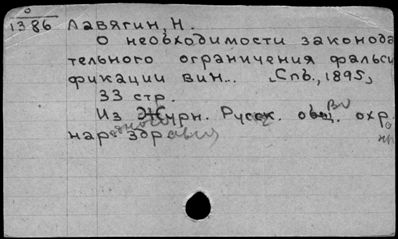 о
1386 Лавягин, Н.
О необходимости законода
тельного ограничения фальси
фикации вин... Спб., 1895,
33 стр.
Из Журн. Русск. общ. охр.
нар. здравия